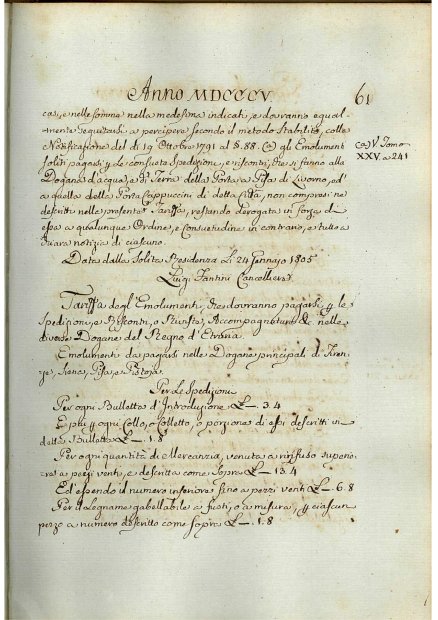 Anno MDCCCV
61
casi, e nelle somme nella medesima indicati, e dovranno equal-
mente seguitarsi a percipere secondo il metodo stabilito, colla
Notificazione del dì 19 Ottobre 1791 al §. 88 (a) gli Emolumenti
soliti pagarsi p le consuete Spedizioni, e riscontri, che si fanno alla
Dogana d'acqua, e di Terra della Porta a Pisa di Livorno, ed
a quella della Porta Cappuccini di detta Città, non compresi ne
descritti nella presente Tariffa, restando derogata in forza di
essa a qualunque Ordine, e Consuetudine in contrario, e tutto a
chiara notizia di ciascuno.
(a) V. Tomo
XXV. a 241
Data dalla Solita Residenza Li 24 Gennaio 1805
Luigi Fantini Cancelliere
Tariffa degl'Emolumenti, che dovranno pagarsi p le
Spedizioni, e Riscontri, o Riviste, Accompagnature & nelle
diverse Dogane del Regno d'Etruria.
Emolumenti da pagarsi nelle Dogane principali di Firen-
ze, Siena, Pisa, e Pistoja.
Per Le Spedizioni
Per ogni Bulletta d'Introduzione £ —. 3. 4
E più p ogni Collo, o Colletto, o porzione di essi descritti in
detta Bulletta £ —. 1. 8
Per ogni quantità di Mercanzia, venuta a rinfuso superio-
re a pezzi venti, e descritta come sopra £ —. 13. 4
Ed essendo il numero inferiore sino a pezzi venti £ —. 6. 8
Per il Legname gabellabile a fusti, o a misura, p ciascun
pezzo a numero descritto come sopra £ —. 1. 8